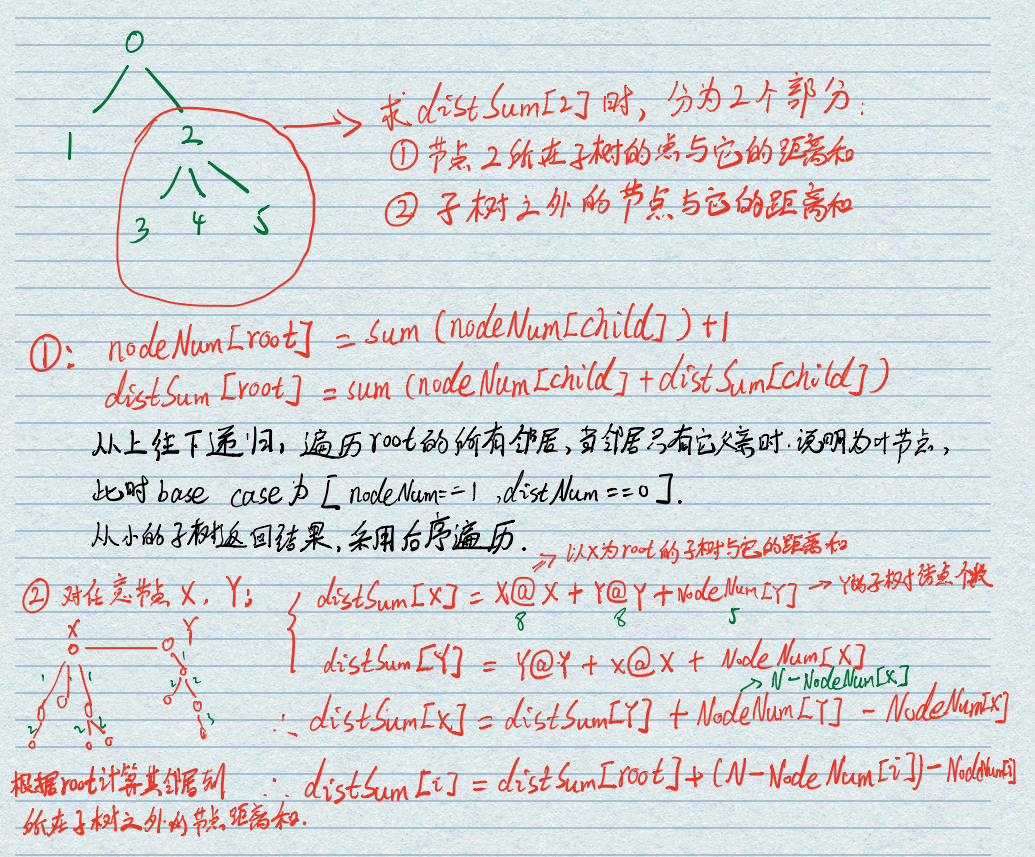 0
1
2
3 4 5
求distSum[2]时，分为2个部分：
① 节点2所在子树的点与它的距离和
② 子树之外的节点与它的距离和
①: nodeNum[root] = sum (nodeNum[child])+1
distSum[root] = sum (nodeNum[child]+distSum[child])
从上往下递归，遍历root的所有邻居，当邻居只有它父亲时.说明为叶节点，
此时base case为[nodeNum==1,distNum==0].
从小的子树返回结果，采用后序遍历.
以X为root的子树与它的距离和
② 对任意节点X，Y：
distSum[X] = X@X + Y@Y + NodeNum[Y] → Y的子树结点个数
8 8 5
X Y
distSum[Y] = Y@Y + X@X + NodeNum[X]
1 1 1 2 2 2 2 3
N-NodeNum[X]
∴ distSum[X] = distSum[Y] + NodeNum[Y] - NodeNum[X]
根据root计算其邻居到
所在子树之外的节点距离和.
∴ distSum[i] = distSum[root]+(N-NodeNum[i])-NodeNum[i]